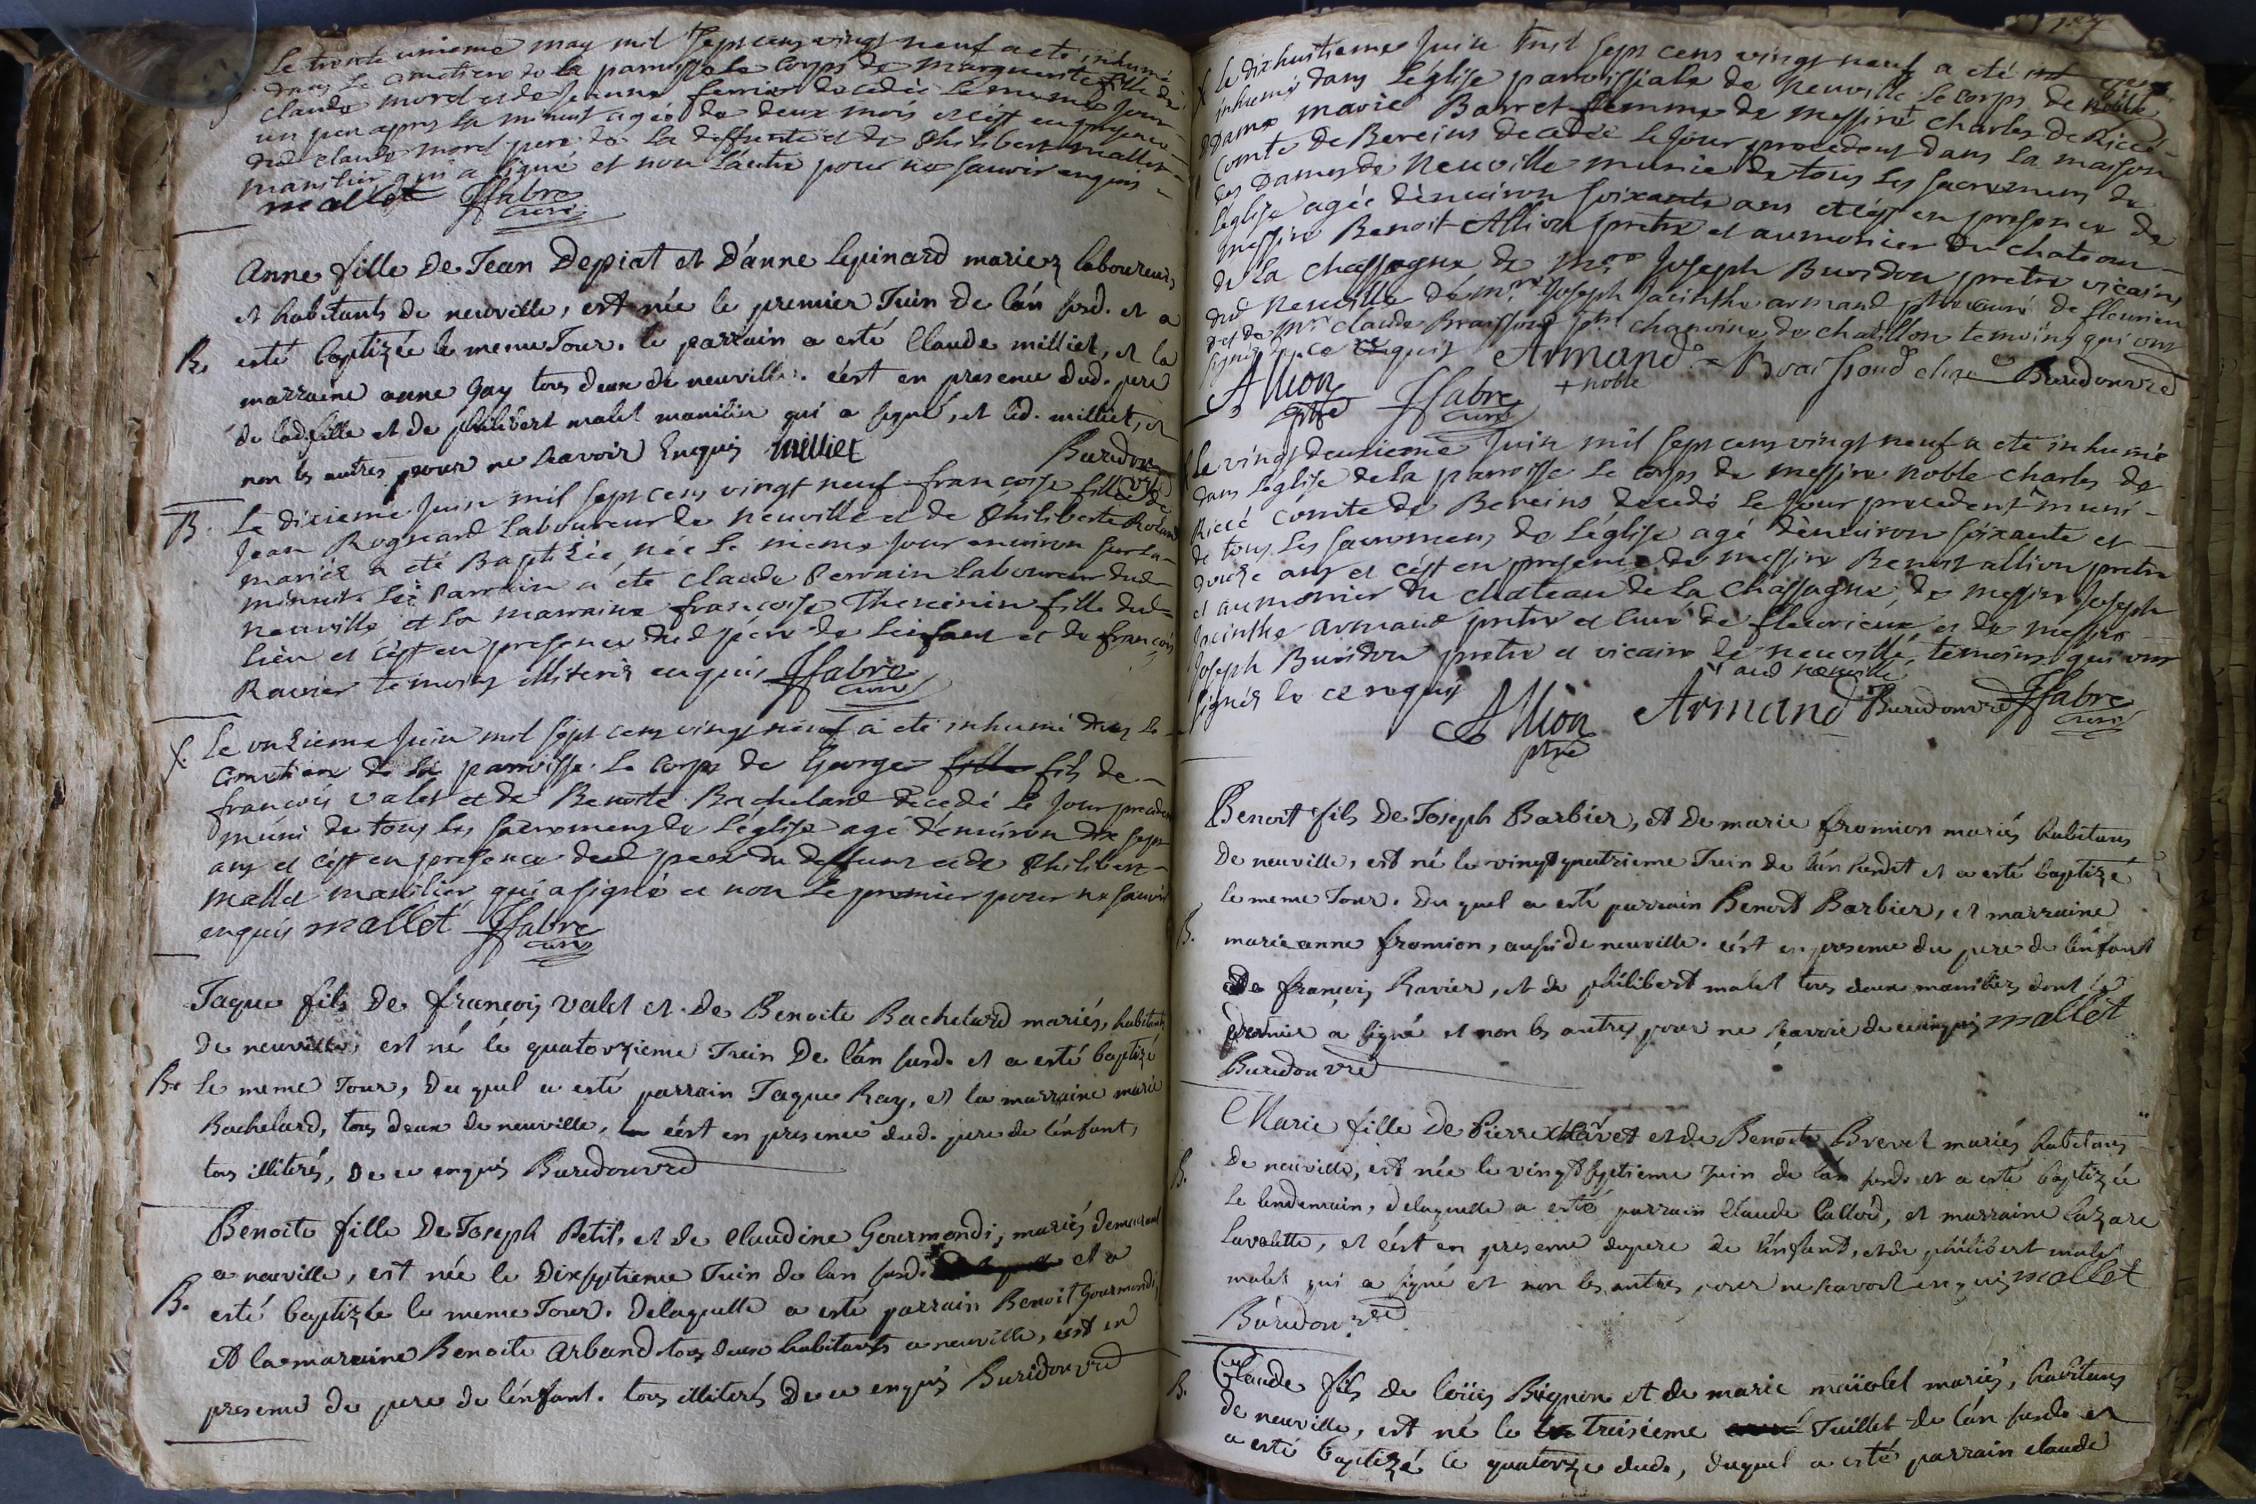 Le trente unieme may mil sept cens vingt neuf a ete inhumé
dans le cimetiere de la paroisse le corps de marguerite fille de
claude morel et de jeanne ferrier decedée le meme jour
un peu apres la minuit agée de deux mois et c'est en presence
dud claude morel pere de la deffunte et de Philibert mallet
manilier qui a signé et non l'autre pour ne sauoir enquis
mallet ffabre
curé
Anne fille De Jean Depiat et D'anne Lepinard mariez laboureurs
et habitants de neuville, est née le premier Juin de l'án susd. et a
B. esté baptizée le meme Jour. le parrain a esté Claude milliet, et la
marraine anne Gay tous deux de neuville. c'est en presence dud. pere
de lad. fille et de philibert malet manilier qui a signé, et led. milliet, et
non les autres pour ne scavoir Enquis milliet Buridon
vre
B. Le dixieme Juin mil sept cens vingt neuf francoise fille de
Jean Rognard laboureur de neuville et de Philiberte Roland
mariéz a été Baptizée, née le meme jour environ sur la
minuit Le Parrain a été claude Perrain laboureur dud
neuville et la marraine françoise Thevenin fille dud
lieu et c'est en presence dud pére de L'enfant et de françois
Ravier temoins illiteréz enquis ffabre
curé
f. Le onzieme Juin mil sept cens vingt neuf a été inhumé dans le
cimetiere de la parroisse le corps de George fille fils de
francois valet et de Benoite Bachelard décedé le jour precedent
muni de tous les sacremens de l'église agé d'environ dix sept
ans et c'est en presence dud pere du deffunt et de Philibert
mallet manilier qui a signé et non le premier pour ne sauoir
enquis mallet ffabre
curé
Jaque fils De françois valet et De Benoite Bachelard mariés, habitants
de neuville, est né le quatorzieme Juin De l'án susd. et a esté baptizé
B. le meme Jour, Du quel a esté parrain Jaque Ray, et la marraine marie
Bachelard, tous deux de neuville, c'est en presence dud. pere de l'enfant
tous illiterés, De ce enquis Buridon vre
Benoite fille De Joseph Petit, et de claudine Gourmondi, mariés demeurant
a neuville, est née le Dixseptieme Juin de lan susd. et a
B. esté baptizée le meme Jour. Delaquelle a esté parrain Benoit Gourmondi,
Et la maraine Benoite Arband tous deux habitants a neuville, c'est en
presence du pere de l'enfant. tous illiterés De ce enquis Buridon vre
127
f Le dixhuitieme Juin mil sept cens vingt neuf a eté
inhumé dans l'église parroissiale de neuville le corps de
Dame marie Barret femme de messire + charles de Riccé
comte de Bereins decedée le jour precedent dans la maison
des Dames de neuville munie de tous les sacremens de
l'église agée d'environ soixante ans et c'est en presence de
messire Benoit Allion pretre et aumonier du chateau
de la chassagne de Mre Joseph Buridon pretre vicaire
dud neuville de Mre Joseph Jacinthe armand ptre curé de fleurieu
et de Mre claude Braissoud ptre chanoine de chatillon temoins qui ont
signé de ce requis Armand Braissoud chne Buridon vre
Allion ffabre + noble
ptre curé
f Le vingt deuxieme Juin mil sept cens vingt neuf a eté inhumé
dans l'église de la parroisse le corps de messire noble charles de
Riccé comte de Bereins decedé le jour precedent muni
de tous les sacremens de l'église agé d'environ soixante et
douze ans et c'est en presence de messire Benoit allion pretre
et aumonier du chateau de la chassagne, de messire Joseph
Jacinthe armand pretre et curé de fleurieux et de messire
Joseph Buridon pretre et vicaire de neuville, temoins qui ont
signéz de ce requis aud neuville
Allion Armand Buridon vre ffabre
ptre curé
Benoit fils De Joseph Barbier, et De marie fromion mariés habitans
De neuville, est né le vingt quatrieme Juin de l'án susdit et a esté baptizé
le meme Jour. Du quel a esté parrain Benoit Barbier, et marraine
B. marie anne fromion, aussi de neuville. c'est en presence du pere de l'enfant
De françois Ravier, et de philibert malet tous deux maniliers dont le
dernier a signé et non les autres pour ne scavoir de ce enquis mallet
Buridon vre
Marie fille De Pierre et de Benoite Brevet mariés habitans
B. De neuville, est née le vingt septieme Juin de l'án susd. et a esté baptizée
Le lendemain, delaquelle a esté parrain Claude Callod, et marraine Lazare
Lavalette, et c'est en presence du pere de l'enfant, et de philibert malet
malet qui a signé et non les autres pour ne scavoir enquis mallet
Buridon vre
B. Claude fils de Loüis Bignon et de marie maïolet mariés, habitans
de neuville, est né le Treisieme Juillet de l'án susd. et
a esté baptizé le quatorze dud., duquel a esté parrain claude